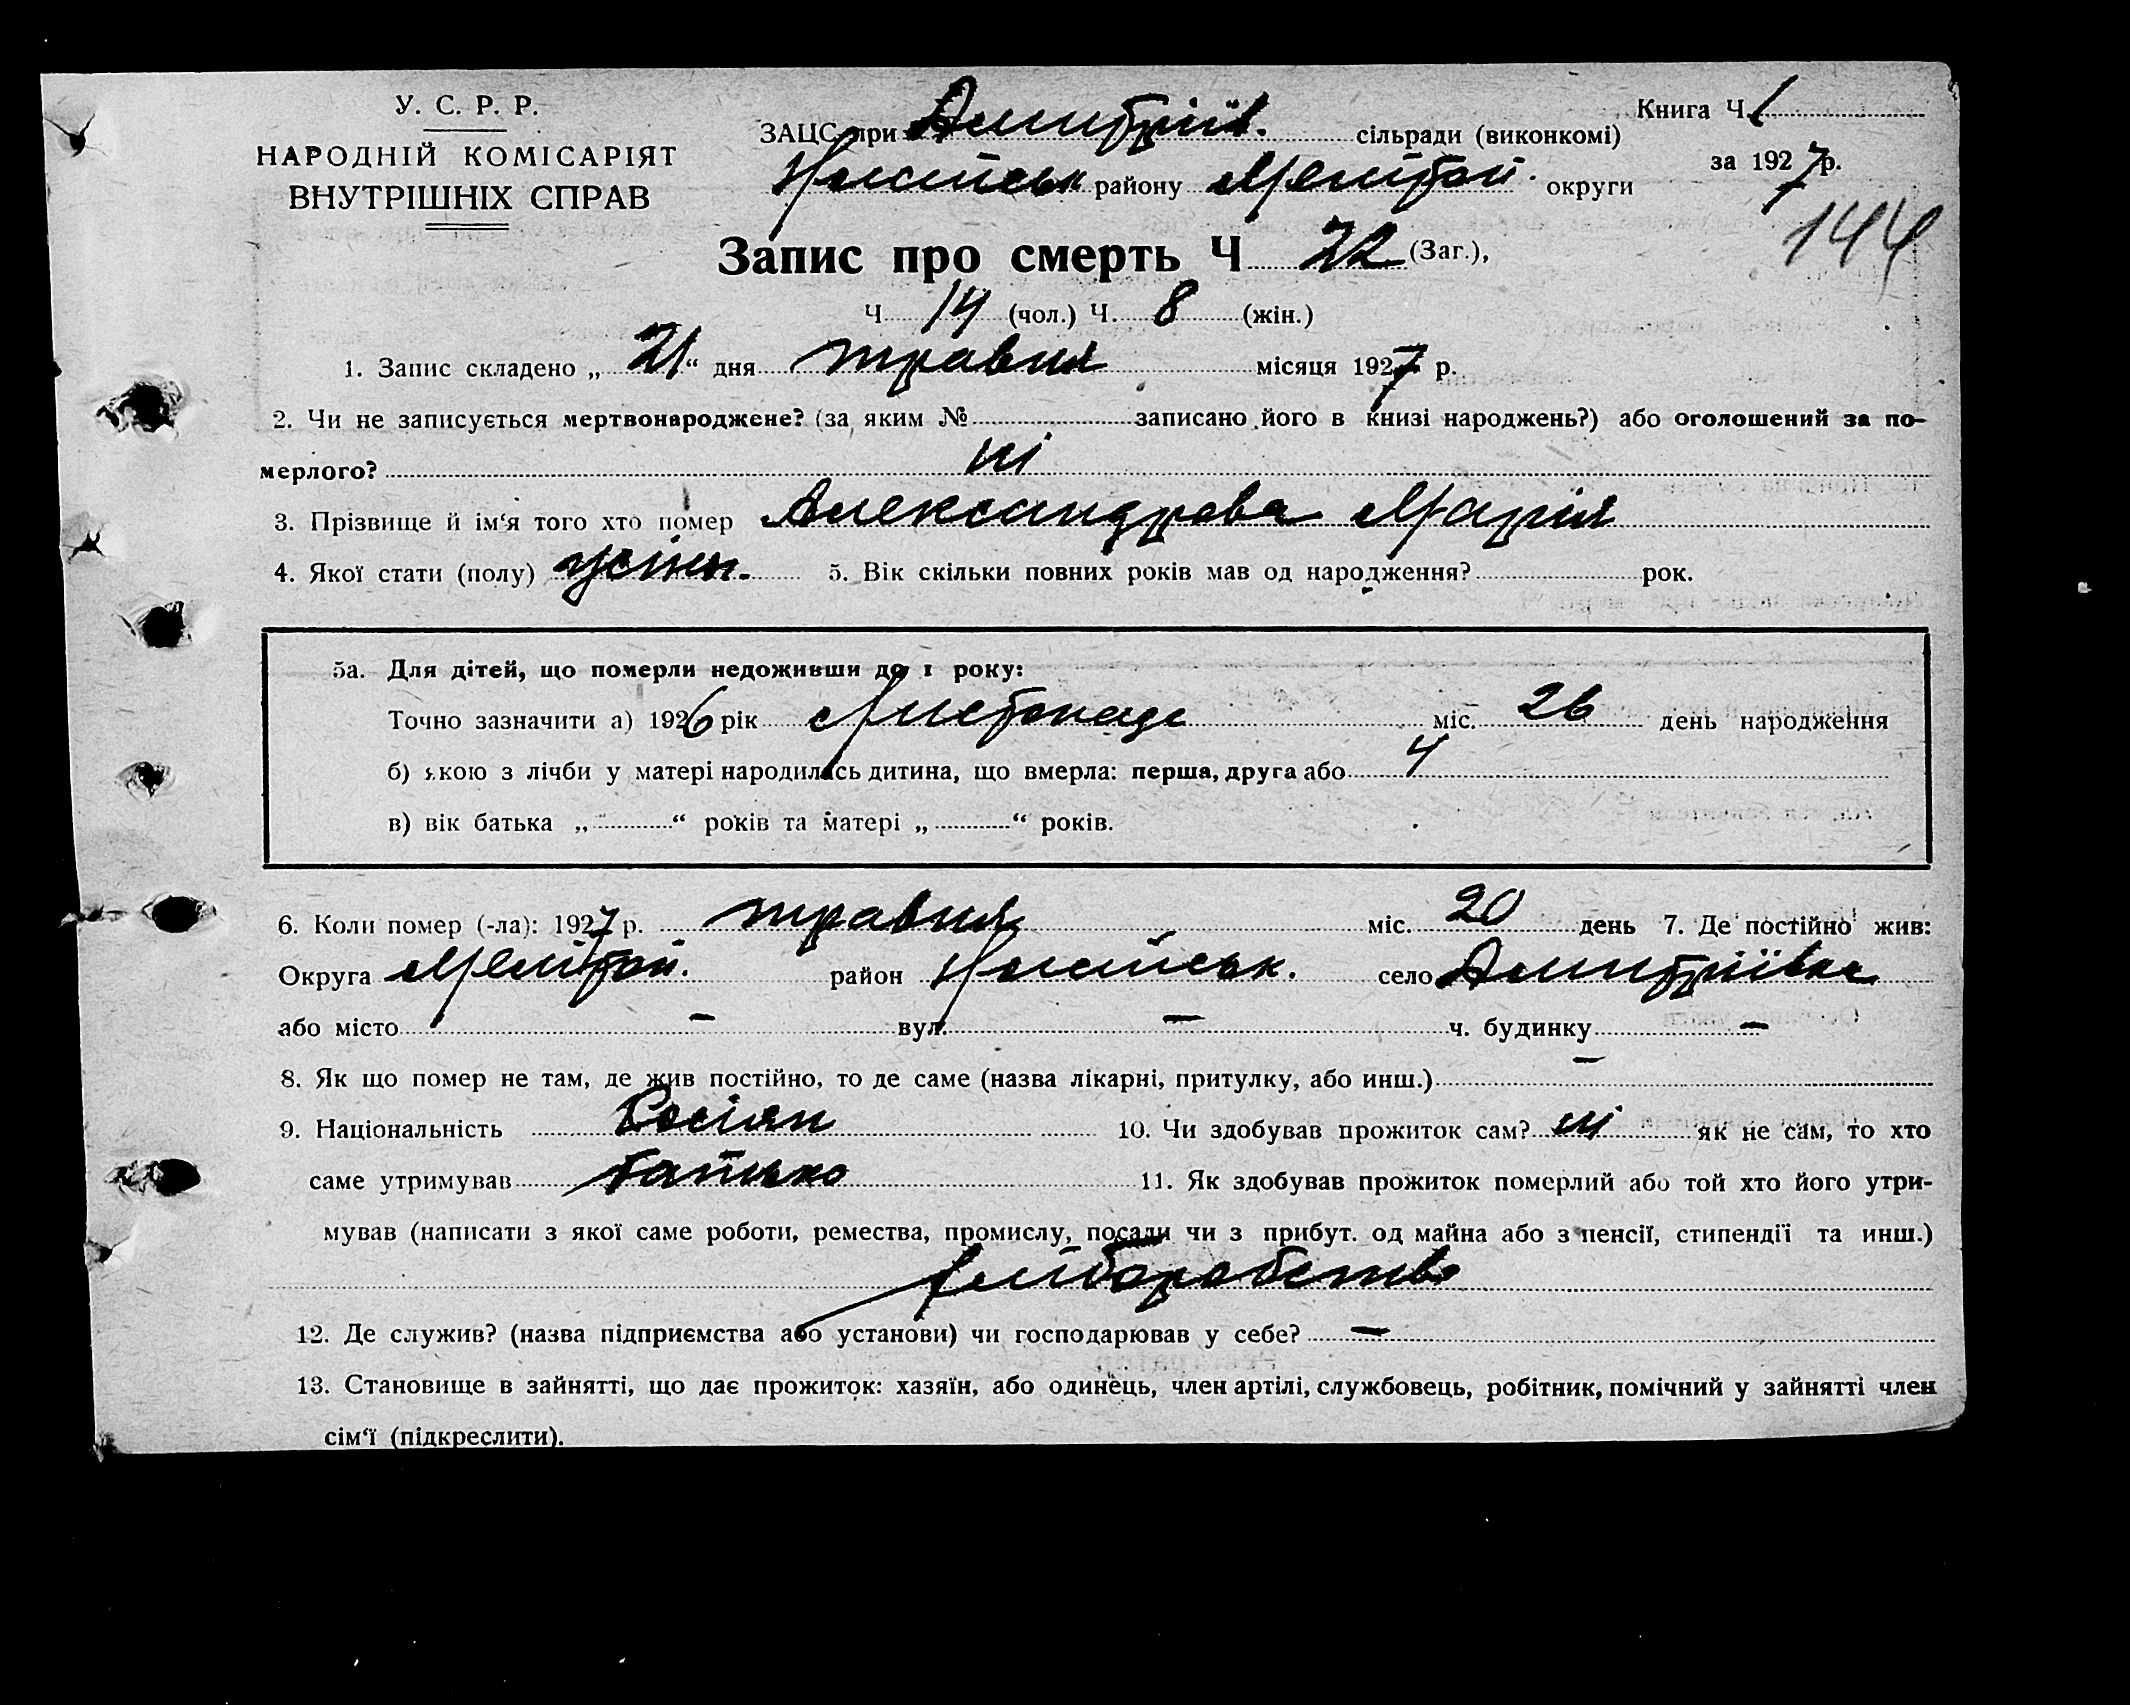 У. С. Р. Р.
НАРОДНІЙ КОМІСАРІЯТ
ВНУТРІШНІХ СПРАВ
ЗАЦС при Дмитріїв. сільради (виконкомі)
району Мелітоп. округи
Книга Ч. 1
за 1927 р.
144
Запис про смерть Ч 22 (Заг.),
Ч 14 (чол.) Ч. 8 (жін.)
1. Запис складено „21“ дня травня місяця 1927 р.
2. Чи не записується мертвонароджене? (за яким № записано його в книзі народжень?) або оголошений за по-
мерлого? ні
3. Прізвище й ім‘я того хто помер Александрова Марія
4. Якої стати (полу) жіноч. 5. Вік скільки повних років мав од народження? рок.
5а. Для дітей, що померли недоживши до 1 року:
Точно зазначити а) 1926 рік Листопада міс. 26 день народження
б) якою з лічби у матері народилась дитина, що вмерла: перша, друга або 4
в) вік батька „ “ років та матері „ “ років.
6. Коли помер (-ла): 1927 р. травня міс. 20 день 7. Де постійно жив:
Округа Мелітоп. район село Дмитріївка
або місто – вул. – ч. будинку –
8. Як що помер не там, де жив постійно, то де саме (назва лікарні, притулку, або инш.) –
9. Національність Росіян 10. Чи здобував прожиток сам? ні як не сам, то хто
саме утримував батько 11. Як здобував прожиток померлий або той хто його утри-
мував (написати з якої саме роботи, ремества, промислу, посади чи з прибут. од майна або з пенсії, стипендії та инш.)
хліборобство
12. Де служив? (назва підприємства або установи) чи господарював у себе? –
13. Становище в зайнятті, що дає прожиток: хазяїн, або одинець, член артілі, службовець, робітник, помічний у зайнятті член
сім‘ї (підкреслити).